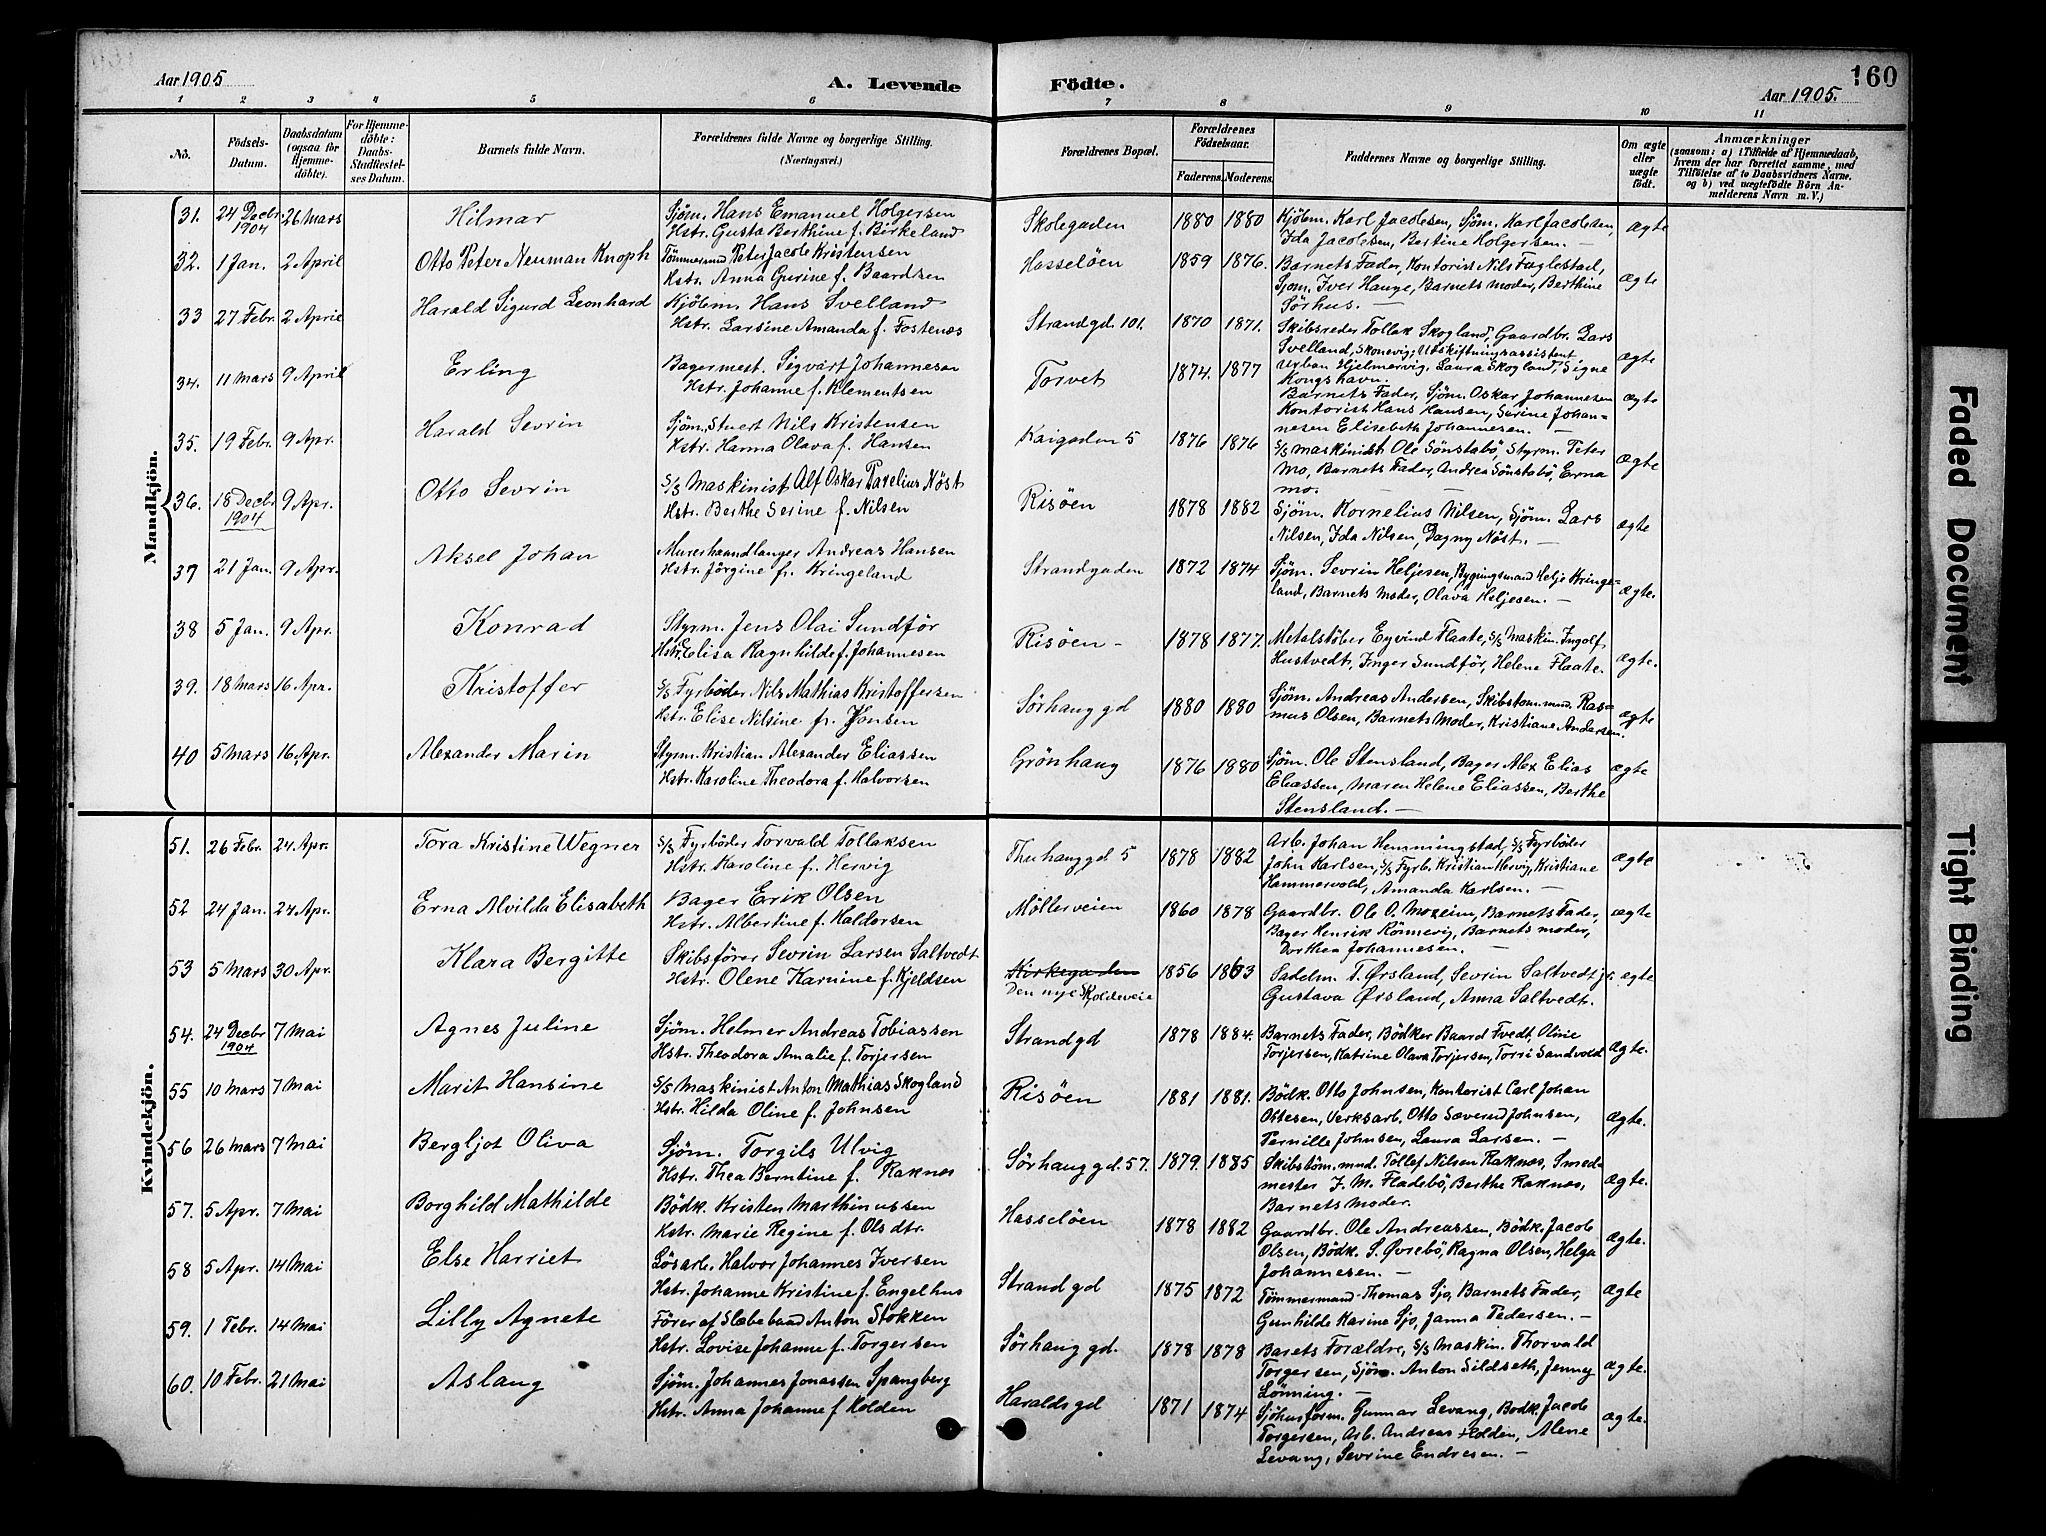 Aar 1905
A. Levende
Födte.
160
Aar 1905.
1 2 3 4 5 6 7 8 9 10 11
Nô.
Födsels-Datum.
Daabsdatum (ogsaa for Hjemme-döbte).
For Hjemme-döbte: Daabs-Stadfæstel-ses Datum.
Barnets fulde Navn.
Forældrenes fulde Navne og borgerlige Stilling. (Næringsvei.)
Forældrenes Bopæl.
Forældrenes Födselsaar.
Faderens. Moderens.
Faddernes Navne og borgerlige Stilling.
Om ægte eller uægte födt.
Anmærkninger
(saasom: a) i Tilfælde af Hjemmedaab, hvem der har forrettet samme, med Tilföielse af to Daabsvidners Navne. og b) ved uægtefödte Börn Anmelderens Navn m. V.)
Mandkjön.
31. 24 Decbr. 1904 26 Mars Hilmar
Sjöm. Hans Emanuel Holgersen
Hstr. Gusta Berthine f. Birkeland
Skolegaden 1880 1880
Kjölem. Karl Jacobsen, Sjöm. Karl Jacobsen,
Ida Jacobsen, Bertine Holgersen. —
ægte
32. 1 Jan. 2 April Otto Peter Neuman Knoph
Tömmermand Peter Jacob Kristensen
Hstr. Anna Gurine f. Baardsen
Hasselöen 1859 1876.
Barnets Fader, Kontorist Nils Fuglestad,
Sjöm. Iver Hauge, Barnets Moder, Berthine
Sörhus. —
ægte
33 27 Febr. 2 April Harald Sigurd Leonhard
Kjölem. Hans Svelland
Hstr. Larsine Amanda f. Fostenæs
Strandgd. 101. 1870 1871.
Skibsreder Tollak Skogland, Gaardbr. Lars
Svelland, Skonevig; Udskiftningsassistent
Urban Hjelmervig, Laura Skogland, Signe
Kongshavn.
ægte
34. 11 Mars 9 April Erling
Bagermest. Sigvart Johannesen
Hstr. Johanne f. Klementsen
Torvet 1874. 1877
Barnets Fader, Sjöm. Oskar Johannesen
Kontorist Hans Hansen, Serine Johan-
nesen Elisebeth Johannesen. —
ægte
35. 19 Febr. 9 Apr. Harald Sevrin
Sjöm. Stuert Nils Kristensen
Hstr. Hanna Olava f. Hansen
Kaigaden 5 1876 1876
S/S Maskinist Ole Sönstabö, Styrm. Peter
Mo, Barnets Fader, Andrea Sönstabö, Erna
Mo. —
ægte
36. 18 Decbr 1904 9 Apr. Otto Sevrin
S/S Maskinist Alf Oskar Parelius Nöst
Hstr. Berthe Serine f. Nilsen
Risöen 1878 1882
Sjöm. Kornelius Nilsen, Sjöm. Lars
Nilsen, Ida Nilsen, Dagny Nöst. —
ægte
37 21 Jan. 9 Apr. Aksel Johan
Murerhaandlanger Andreas Hansen
Hstr. Jörgine fr. Kringeland
Strandgaden 1872 1874
Sjöm. Sevrin Heljesen, Bygningsmand Helje Kringe-
land, Barnets Moder, Olava Heljesen. —
ægte.
38 5 Jan. 9 Apr. Konrad
Styrm. Jens Olai Sundför
Hstr. Elisa Ragnhilde f. Johannesen
Risöen - 1878 1877.
Metalstöber Eyvind Flaate, S/S Maskin. Ingolf
Hustvedt, Inger Sundför, Helene Flaate.
ægte.
39. 18 Mars 16 Apr. Kristoffer
S/S Fyrböder Nils Mathias Kristoffersen
Hstr. Elise Nilsine fr. Jonsen
Sörhauggd 1880 1880
Sjöm. Andreas Andersen, Skibstöm.mnd. Ras-
mus Olsen, Barnets Moder, Kristiane Andersen.
ægte
40 5 Mars 16 Apr. Alexander Marin
Styrm. Kristian Alexander Eliassen
Hstr. Karoline Theodora f. Halvorsen
Grönhaug 1876 1880
Sjöm. Ole Stensland, Bager Alex Elias
Eliassen, Maren Helene Eliassen, Berthe
Stensland. —
ægte
Kvindekjön.
51. 26 Febr. 24 Apr. Tora Kristine Wegner
S/S Fyrböder Torvald Tollaksen
Hstr. Karoline fr. Hervig
Thuhauggd 5 1878 1882
Arb. Johan Hemmingstad, S/S Fyrböder
John Karlsen, S/S Fyrb. Kristian Hervig, Kristiane
Hammervold, Amanda Karlsen. —
ægte
52 24 Jan. 24 Apr. Erna Alvilda Elisabeth
Bager Erik Olsen
Hstr. Albertine f. Haldorsen
Möllerveien 1860 1878
Gaardbr. Ole O. Mozeim, Barnets Fader,
Bager Henrik Rönnevig, Barnets Moder,
Dorthea Johannesen. —
ægte
53 5 Mars 30 Apr. Klara Bergitte
Skibsförer Sevrin Larsen Saltvedt
Hstr. Olene Karnine f. Kjeldsen
Kirkegaden
Den nye Skoldeveie 1856 1863
Sadelm. T. Ørsland, Sevrin Saltvedt jr.
Gustava Ørsland, Anna Saltvedt.
ægte
54. 24 Decbr 1904 7 Mai Agnes Juline
Sjöm. Helmer Andreas Tobiassen
Hstr. Theodora Amalie f. Torjersen
Strandgd 1878 1884.
Barnets Fader, Bödker Baard Tvedt, Oline
Torjersen, Katrine Olava Torjersen, Torri Sandvold
ægte.
55 10 Mars 7 Mai Marit Hansine
S/S Maskinist Anton Mathias Skogland
Hstr. Hilda Oline f. Johnsen
Risöen 1881 1881.
Bödk. Otto Johnsen, Kontorist Carl Johan
Ottesen, Verksarb. Otto Severud Johnsen,
Pernille Johnsen, Laura Larsen. —
ægte.
56 26 Mars 7 Mai Bergljot Oliva
Sjöm. Torgils Ulvig
Hstr. Thea Berntine f. Raknes
Sörhauggd. 57. 1879. 1885
Skibstöm.mnd. Tollef Nilsen Raknæs, Smed-
mester J. M. Fladebö, Berthe Raknæs,
Barnets Moder.
ægte.
57. 5 Apr. 7 Mai Borghild Mathilde
Bödk. Kristen Marthinussen
Hstr. Marie Regine f. Olsdtr.
Hasselöen 1878 1882
Gaardbr. Ole Andreassen, Bödk. Jacob
Olsen, Bödk. S. Øvrebö, Ragna Olsen, Helga
Johannesen. —
ægte.
58 5 Apr. 14 Mai Else Harriet
Lösarb. Halvor Johannes Iversen
Hstr. Johanne Kristine f. Engelhus
Strandgd 1875 1872
Tömmermand Thomas Sjo, Barnets Fader,
Gunhilde Karine Sjo, Janna Pedersen. —
ægte
59. 1 Febr. 14 Mai Lilly Agnete
Förer af Slæbebaad Anton Stokken
Hstr. Lovise Johanne f. Torgersen
Sörhauggd. 1878 1878
Barets Forældre, S/S Maskin. Thorvald
Torgersen, Sjöm. Anton Sildseth, Jenny
Lönning. —
ægte.
60. 10 Febr. 21 Mai Aslaug
Sjöm. Johannes Jonassen Spangberg
Hstr. Anna Johanne f Holden
Haraldsgd 1871 1874
Sjöhusform. Gunnar Levang, Bödk. Jacob
Torgersen, Arb. Andreas Holden, Alene
Levang, Sevrine Endresen. —
ægte.
Faded Document
Tight Binding